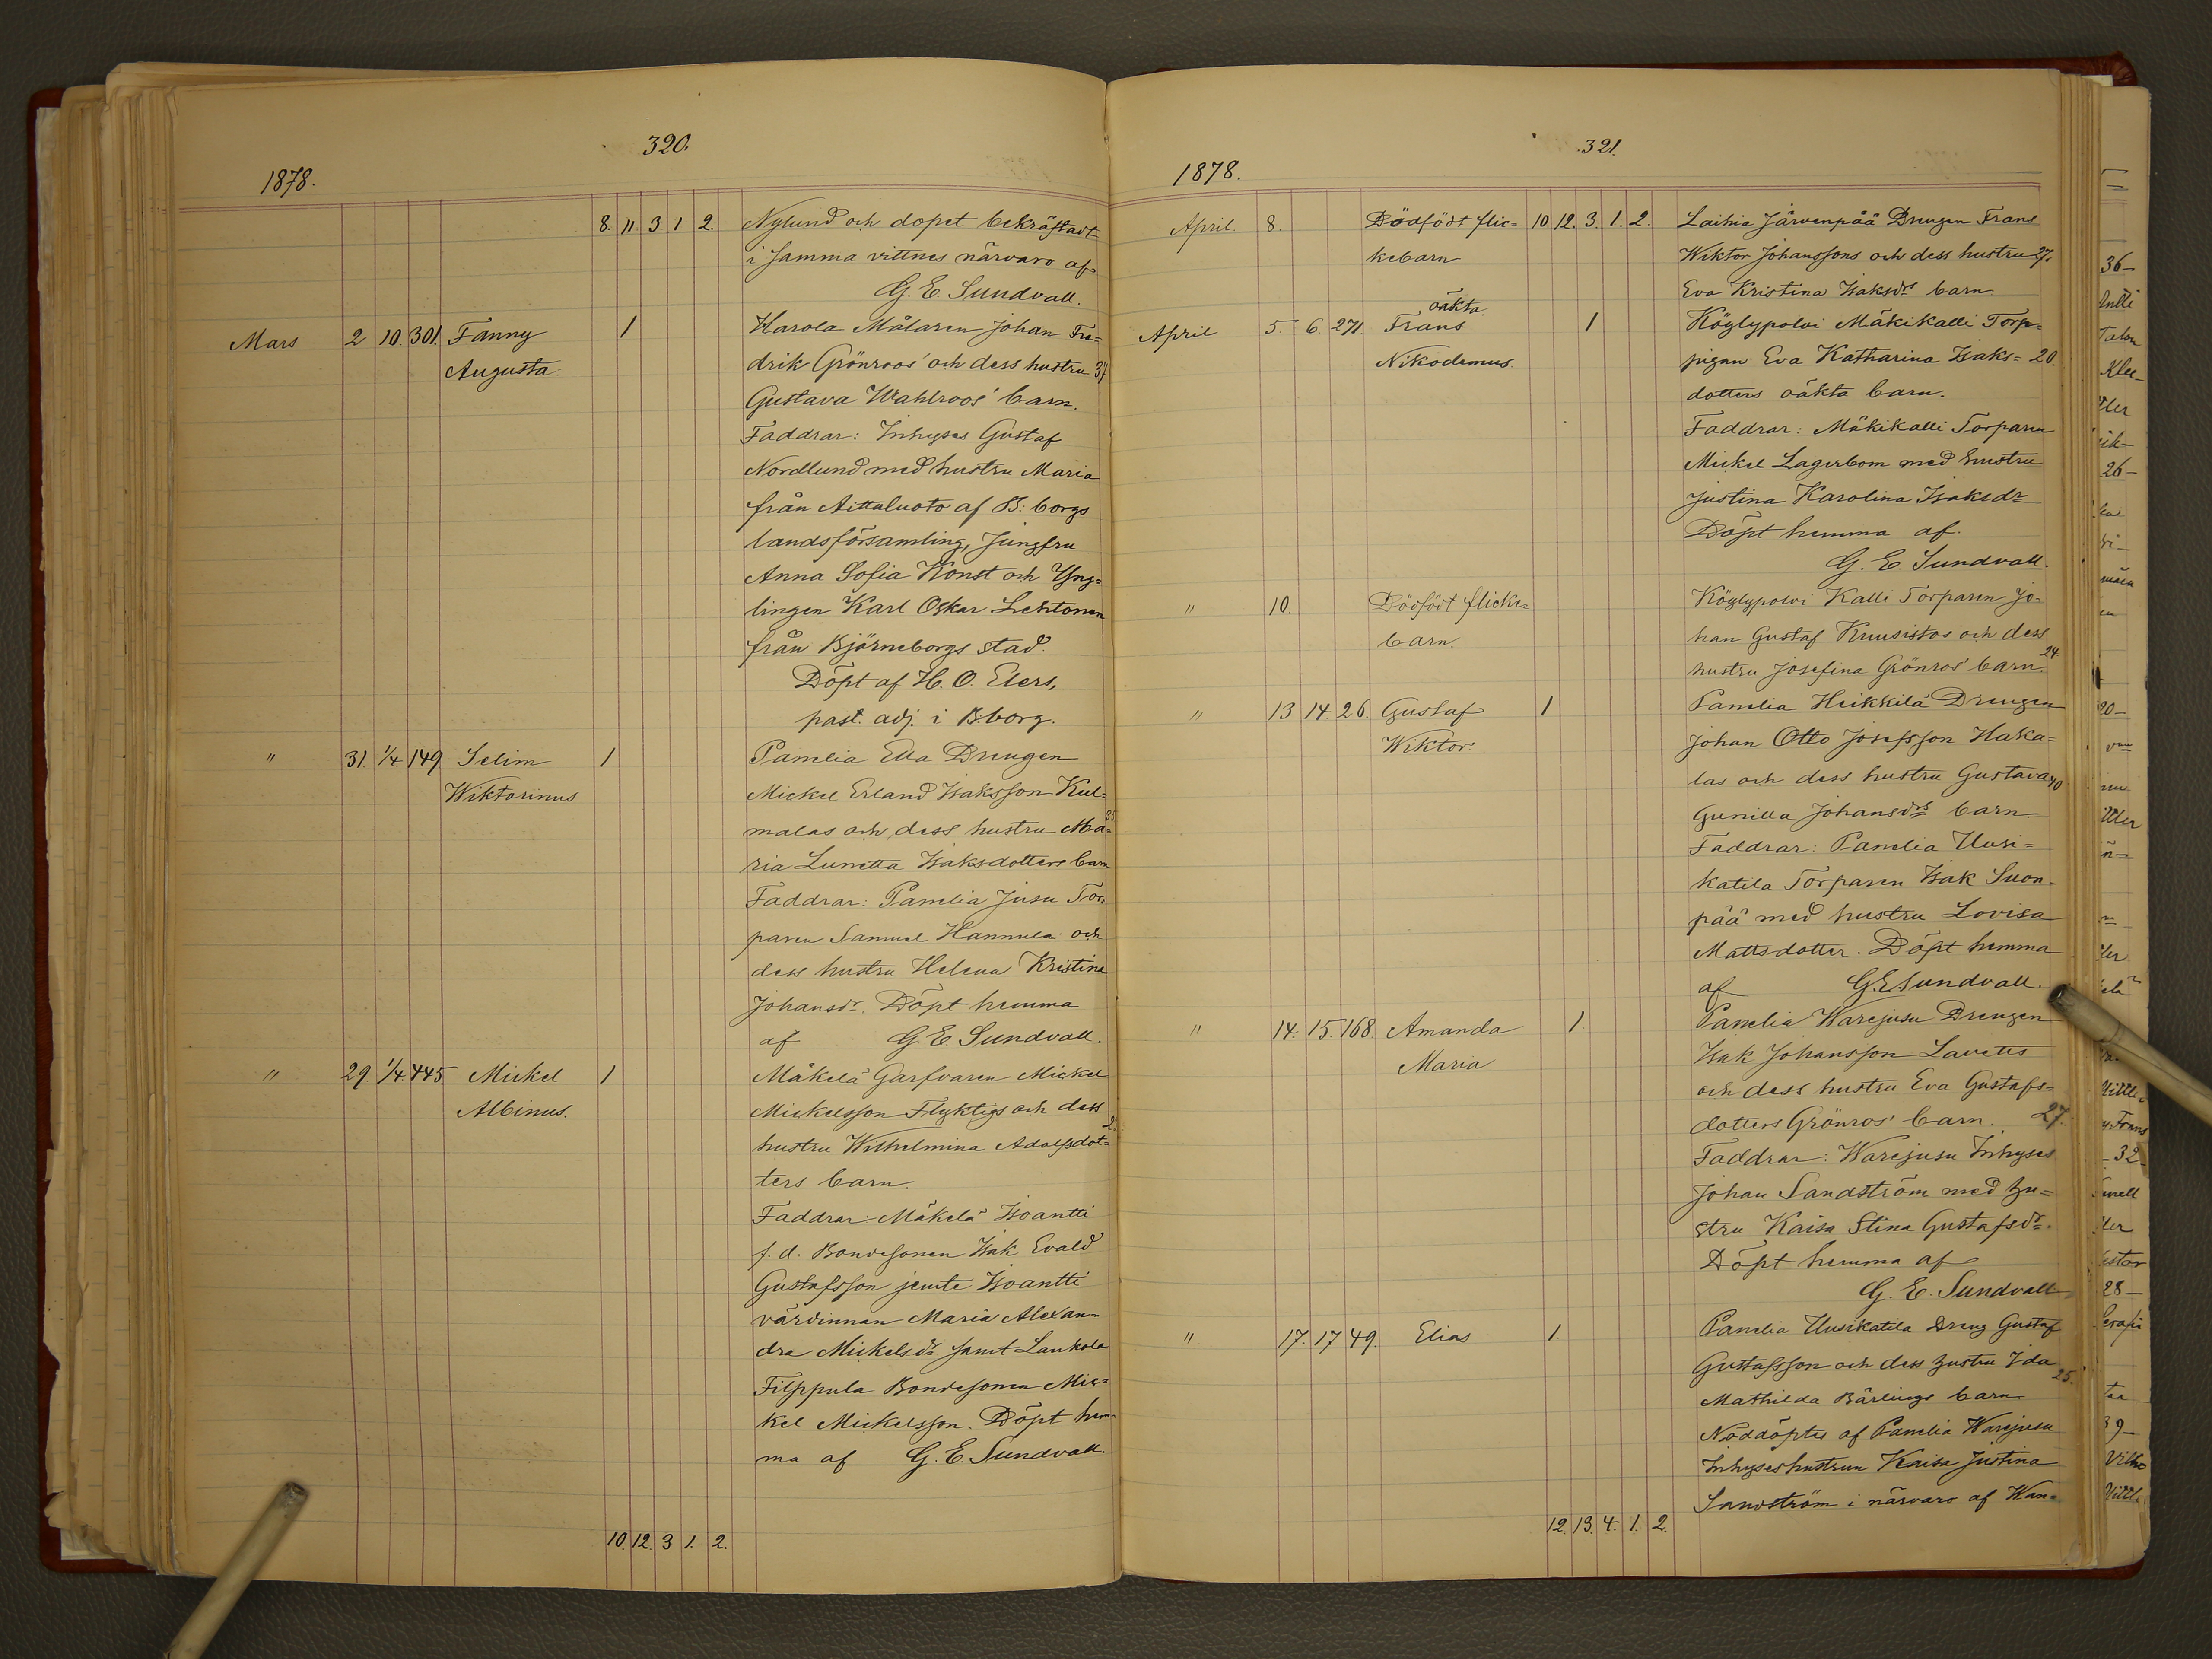 320.
1878.
8. 11 3 1 2. Nylund och dopet bekräftadt
i samma vittnes närvaro af
G. E. Sundvall.
Mars 2 10 301. Fanny 1 Karola Målaren Johan Fre-
Augusta. drik Grönroos' och dess hustru 37
Gustava Wahlroos' barn.
Faddrar: Inhyses Gustaf
Nordlund med hustru Maria
från Aittaluoto af B:borgs
landsförsamling, Jungfru
Anna Sofia Konst och Yng=
lingen Karl Oskar Lehtonen
från Björneborgs stad.
Döpt af H. O. Elers,
past. adj. i Bborg.
" 31 1/4 149 Selim 1 Pamelia Ella Drengen
Wiktorinus Mickel Erland Isaksson Kul=
malas och dess hustru Ma=
ria Lunetta Isaksdotters barn
Faddrar: Pamelia Jusu Tor-
paren Samuel Hannula och
dess hustru Helena Kristina
Johansdr. Döpt hemma
af G. E. Sundvall.
" 29 1/4 445 Mickel 1 Mäkelä Garfvaren Mickel
Albinus. Mickelsson Flyktigs och dess
hustru Wilhelmina Adolfsdot=
ters barn.
Faddrar: Mäkelä Isoantti
f. d. Bondesonen Isak Evald
Gustafsson jemte Isoantti
värdinnan Maria Alexan-
dra Mickelsdr samt Lankola
Filppula Bondesonen Mic=
kel Mickelsson. Döpt hem-
ma af G. E. Sundvall.
10. 12 3 1. 2.
321.
1878.
April. 8. Dödfödt flic= 10 12. 3. 1. 2. Laihia Järvenpää Drengen Frans
kebarn Wiktor Johanssons och dess hustru 27.
Eva Kristina Isaksdrs barn
oäkta
April 5. 6. 271. Frans 1 Köylypolvi Mäkikalli Torp=
Nikodemus. pigan Eva Katharina Isaks= 20.
dotters oäkta barn.
Faddrar: Mäkikalli Torparen
Mickel Lagerbom med hustru
Justina Karolina Isaksdr
Döpt hemma af.
G. E. Sundvall.
" 10. Dödfödt flicke= Köylypolvi Kalli Torparen Jo-
barn. han Gustaf Kruusistos och dess
24.
hustru Josefina Grönros' barn.
" 13 14 26. Gustaf 1 Pamelia Heikkilä Drengen
Wiktor. Johan Otto Josefsson Haka=
las och dess hustru Gustava 40
Gunilla Johansdrs barn
Faddrar: Pamelia Uusi=
katila Torparen Isak Suon-
pää med hustru Lovisa
Mattsdotter. Döpt hemma
af G. E Sundvall.
" 14. 15. 168. Amanda 1. Pamelia Warejusu Drengen
Maria Isak Johansson Lauttis
och dess hustru Eva Gustafs=
dotters Grönros' barn. 27.
Faddrar: Warejusu Inhyses
Johan Sandström med hu=
stru Kaisa Stina Gustafsdr.
Döpt hemma af
G. E. Sundvall
" 17. 17 49. Elias 1. Pamelia Uusikatila Dreng Gustaf
Gustafsson och dess hustru Ida
25.
Mathilda Bärlings barn
Nöddöptes af Pamelia Warejusu
Inhyseshustrun Kaisa Justina
Sandström i närvaro af Wan=
12. 13. 4. 1. 2.